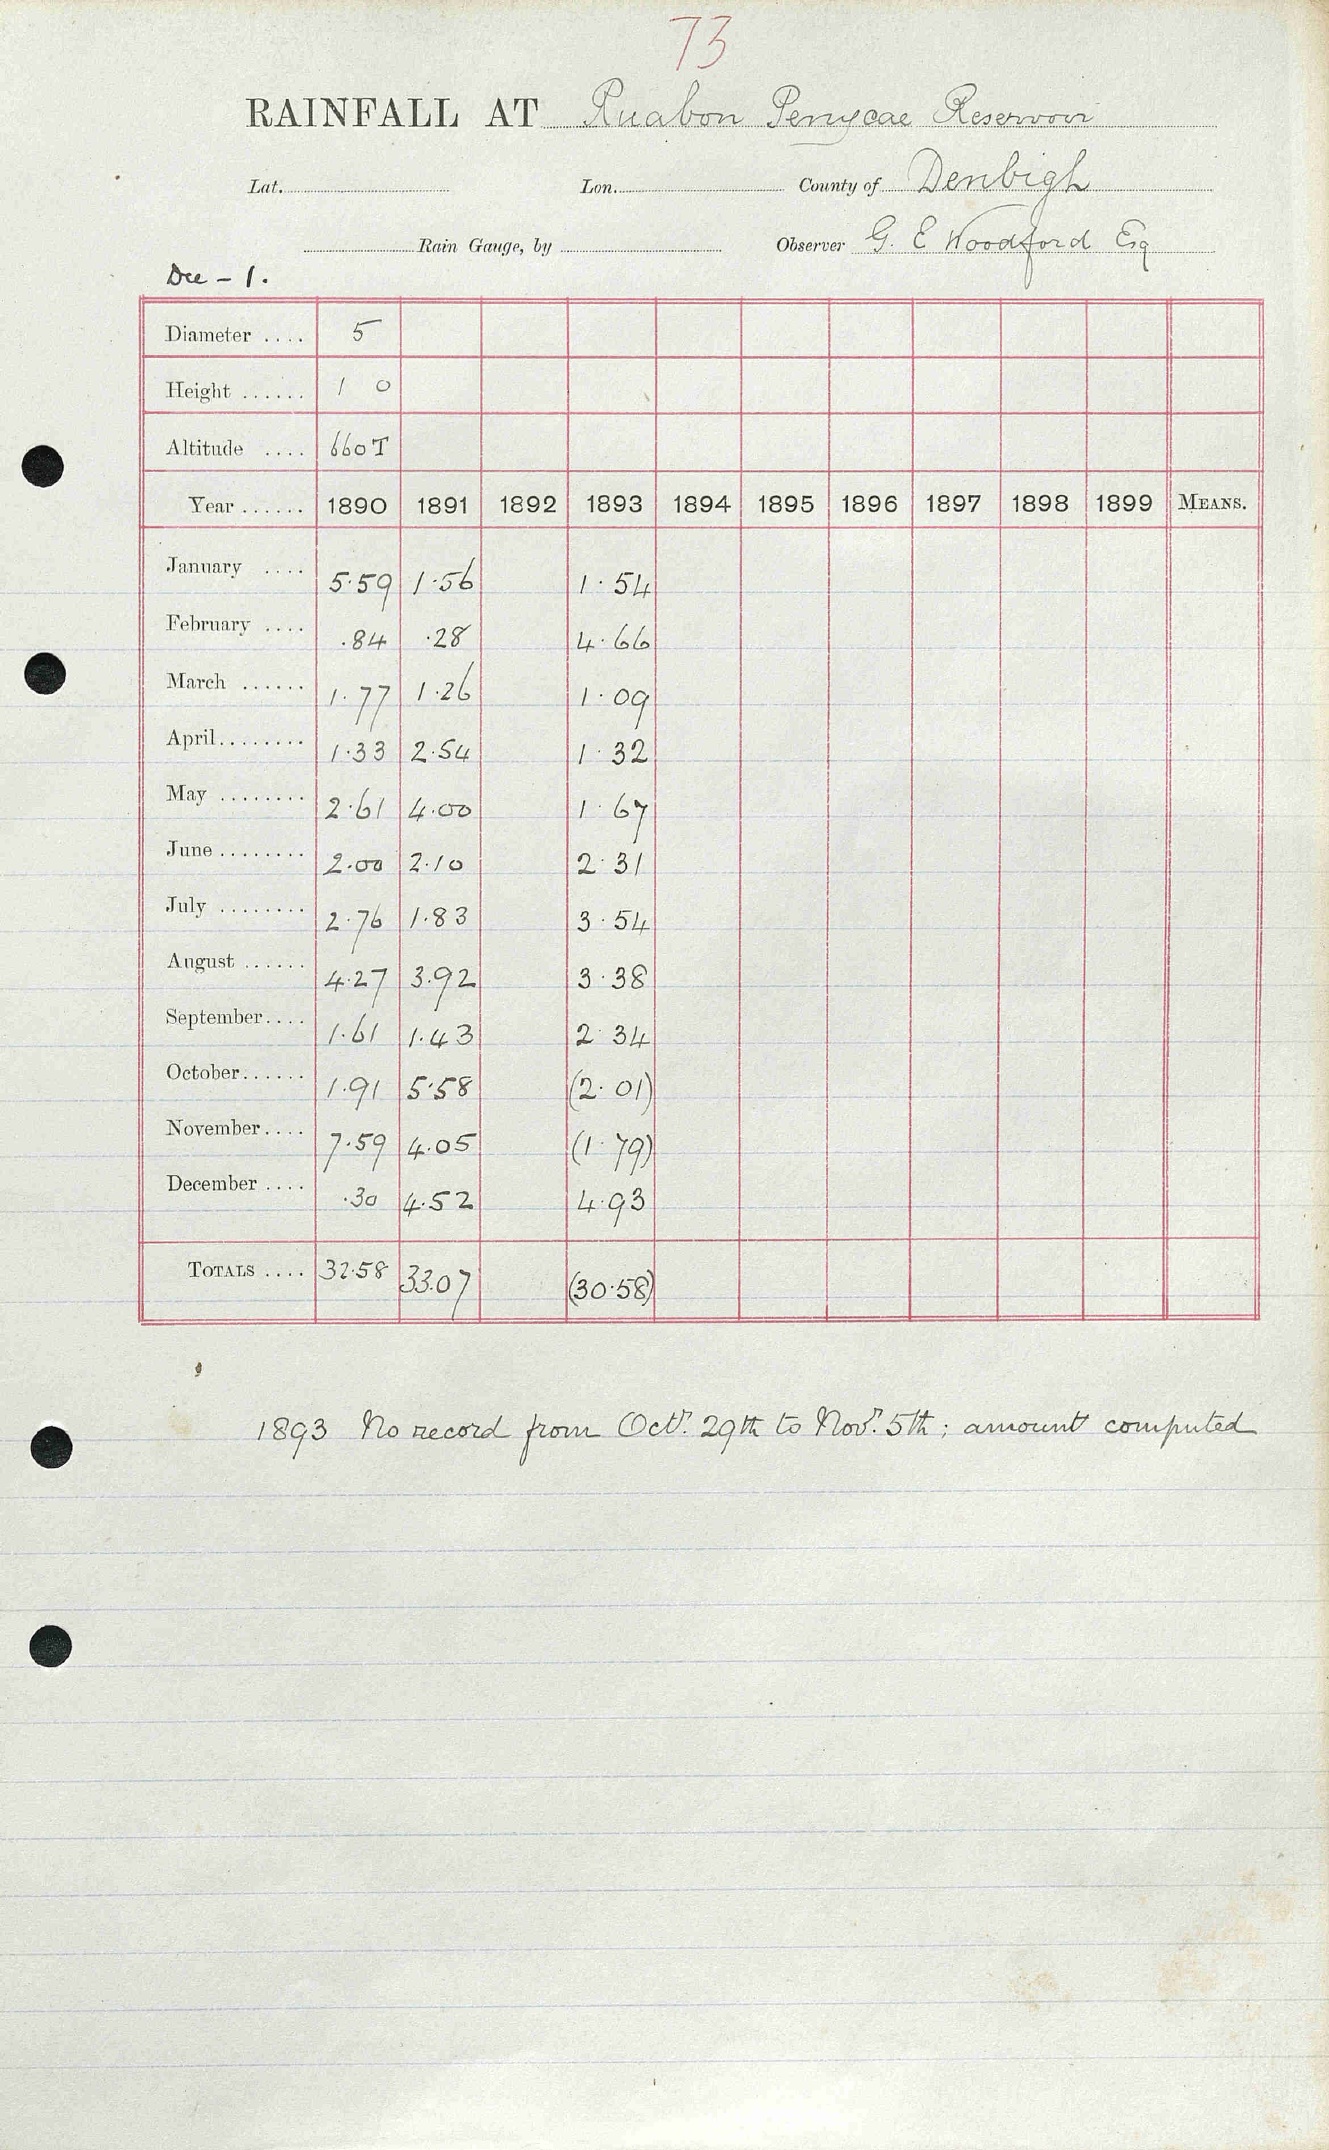 73
RAINFALL AT Ruabon Penycae Reservoir
Lat. Lon. County of Denbigh
Rain Gauge, by Observer G. E Woodford Esq
Dee - 1.
Diameter .... 5
Height ...... 1 0
Altitude .... 660T
Year ...... 1890 1891 1892 1893 1894 1895 1896 1897 1898 1899 MEANS.
January .... 5.59 1.56 1.54
February .... .84 .28 4.66
March ...... 1.77 1.26 1.09
April........ 1.33 2.54 1.32
May ........ 2.61 4.00 1.67
June ........ 2.00 2.10 2.31
July ........ 2.76 1.83 3.54
August ...... 4.27 3.92 3.38
September.... 1.61 1.43 2.34
October...... 1.91 5.58 (2.01)
November.... 7.59 4.05 (1.79)
December .... .30 4.52 4.93
TOTALS .... 32.58 33.07 (30.58)
1893 No record from Octr. 29th to Novr. 5th; amount computed